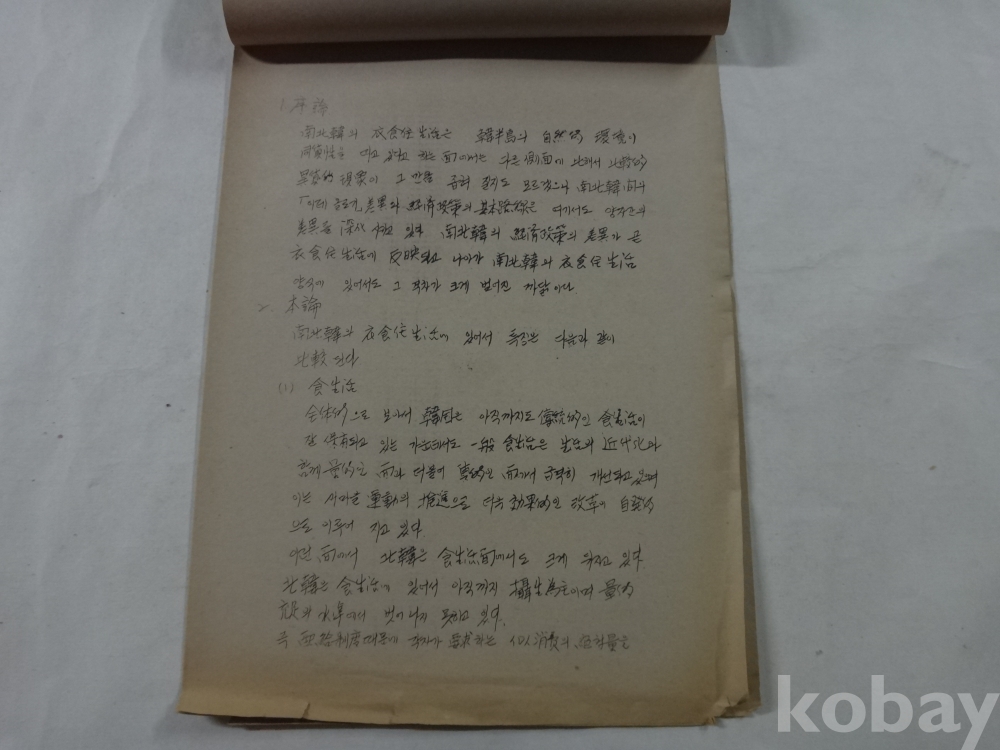 1. 序論
南北韓의 衣食住生活은 韓半島의 自然的 環境이
띠고 있다고 하는 面에서는 다른 側面에 比해서 比較的
現象이 그 만큼 질지도 모르겠으나 南北韓間의
差異와 經濟政策의 基本路線은 여기서도 양자간의
差異를 深化 시키고 있다. 南北韓의 經濟政策의 差異가 곧
衣食住生活에 反映되고 나아가 南北韓의 衣食住生活
양식에 있어서도 그 격차가 크게 벌어진 까닭이다.
2. 本論
南北韓의 衣食住生活에 있어서 특징은 다음과 같이
比較된다
(1) 食生活
全体的으로 보아서 韓国은 아직까지도 傳統的인 食生活이
잘 保有되고 있는 가운데서도 一般 食生活은 生活의 近代化와
함께 量的인 面과 더불어 質的인 面에서 급격히 개선되고 있으며
이는 새마을 運動의 推進으로 더욱 効果的인 改革이 自發的
으로 이루어 지고 있다.
이런 面에서 北韓은 食生活面에서도 크게 뒤지고 있다.
北韓은 食生活에 있어서 아직까지 攝生為主이며 量的
水準에서 벗어나지 못하고 있다.
즉 配給制度 때문에 각자가 要求하는
kobay